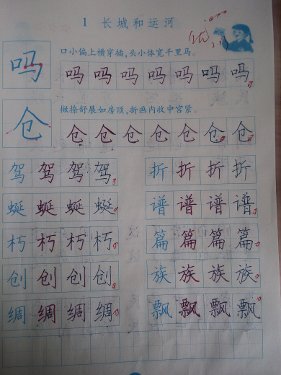 1 长城和运河
口小偏上横穿插,头小体宽千里马。
吗 吗 吗 吗 吗 吗 吗 吗
撇捺舒展如房顶,折画内收中宫紧。
仓 仓 仓 仓 仓 仓 仓 仓
驾 驾 驾 驾 折 折 折 折
蜒 蜒 蜒 蜒 谱 谱 谱 谱
朽 朽 朽 朽 篇 篇 篇 篇
创 创 创 创 族 族 族 族
绸 绸 绸 绸 飘 飘 飘 飘